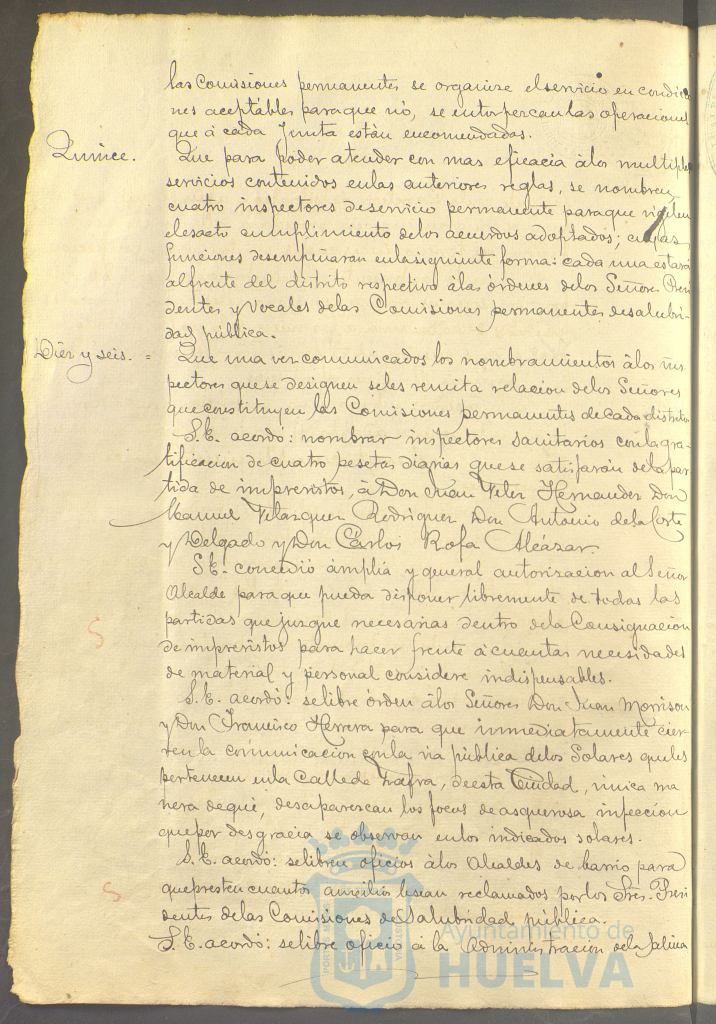 las Comisiones permanentes se organize el servicio en condicio
nes aceptables para que nó, se entorpezcan las operaciones
que á cada Junta están encomendadas.
Quince.
Que para poder atender con mas eficacia á los multiples
servicios contenidos en las anteriores reglas, se nombren
cuatro inspectores de servicio permanente para que vigilen
el esacto cumplimiento de los acuerdos adoptados; cuyas
funciones desempeñaran en la siguiente forma: cada uno estará
al frente del distrito respectivo á las órdenes de los Señores Presi
dentes y Vocales de las Comisiones permanentes de salubri-
dad pública.
Diez y seis. =
Que una vez comunicados los nombramientos á los ins
pectores que se designen se les remita relacion de los Señores
que constituyen las Comisiones permanentes de cada distrito.
S. E. acordó: nombrar inspectores sanitarios con la gra-
tificacion de cuatro pesetas diarias que se satisfarán de la par
tida de imprevistos, á Don Juan Hernandez Don
Manuel Velazquez Rodriguez Don Antonio de la Corte
y Delgado y Don Cárlos Rofa Alcázar.
S. E. concedió ámplia y general autorizacion al Señor
Alcalde para que pueda disponer libremente de todas las
partidas que juzgue necesarias dentro de la Consignación
de imprevistos para hacer frente á cuantas necesidades
de material y personal considere indispensables.
S. E. acordó: se libre órden á los Señores Don Juan Morrison
y Don Francisco Herrera para que inmediatamente cier-
ren la comunicacion con la via pública de los Solares que les
pertenecen en la Calle de Zafra, de esta Ciudad, única ma
nera de que, desaparezcan los focos de asquerosa infeccion
que por desgracia se observan en los indicados solares.
S. E. acordó: se libren oficios á los Alcaldes de barrio para
que presten cuantos auxilios sean reclamados por los Sres. Presi
dentes de las Comisiones de Salubridad pública.
S. E. acordó: se libre oficio á la Administracion de la
Ayuntamiento de
HUELVA